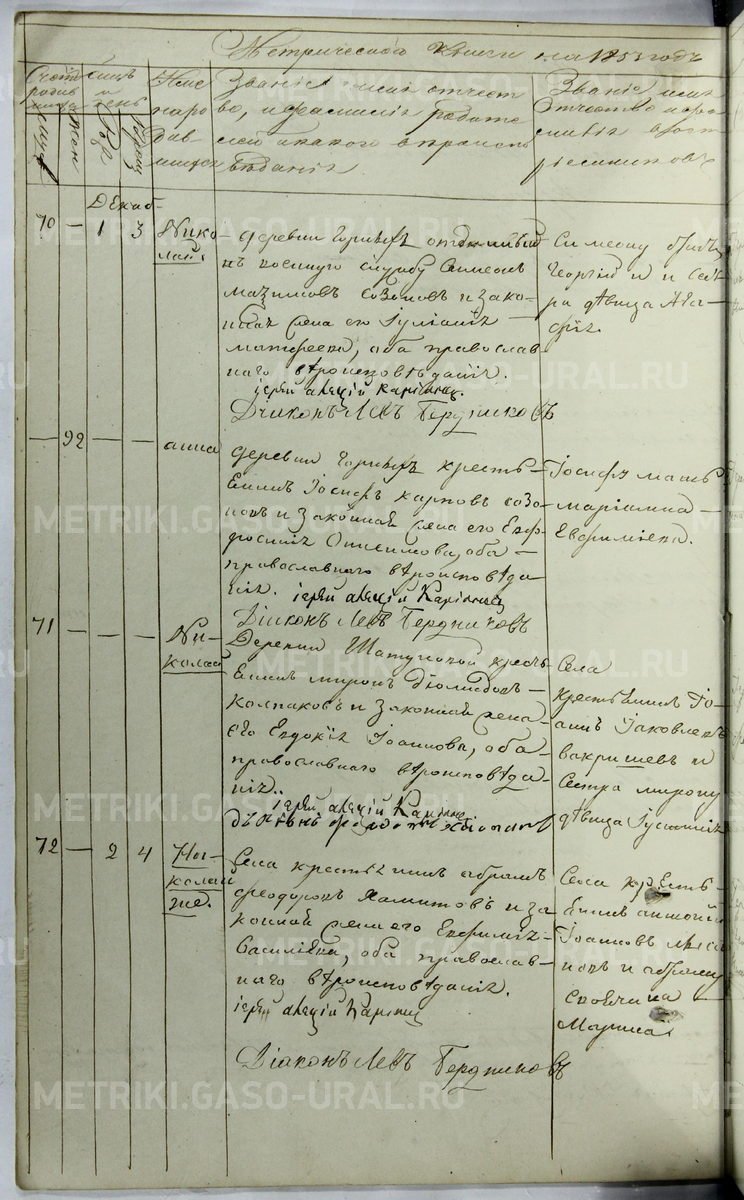 Метрической книги на 1853 годъ
Счетъ родив шихся
муж
жен
Мѣсяцъ и день
Рож
Крещ
Имена родив шихся
Званiе имя отчест
во, и фамилiя родите
лей и какого вѣроисп
вѣданiя
Званiе имя
Отчество и фа
милiя воспр
рiемниковъ
Декаб-
70 — 1 3
Нико
лай
деревни
въ военную службу Симеонъ
Созоновъ и зако-
ная жена его Iулiанiя
матфеева, оба православ
наго вѣроисповѣданiя.
iерей алексiй
Дiаконъ Левъ Бердниковъ
Симеону братъ
Георгiй и сест
ра дѣвица Ага-
фiя.
— 92 — —
анна
деревни кресть-
янинъ Iосифъ карповъ созо
новъ и законная жена его Евф
росинiя Онисимова, оба —
православнаго вѣроисповѣда
нiя. iерей алексiй
Дiаконъ Левъ Бердниковъ
Iосифу мать
марiамна —
Евфимiева.
71 — — —
Ни-
колай
Деревни кресть
янинъ миронъ
Колпаковъ и законная жена
его Евдокiя Iоаннова, оба
православнаго вѣроисповѣда-
нiя..
iерей алексiй
Села
крестьянинъ Iо-
аннъ Iаковлевъ
и
Сестра мирону
дѣвица Iустинiя
72 — 2 4
Ни-
колай
же.
Села крестьянинъ абрамъ
феодоровъ и за
конная жена его Евфимiя
Василiева, оба православ-
наго вѣроисповѣданiя.
iерей алексiй
Дiаконъ Левъ Бердниковъ
Села кресть-
янинъ антонiй
Iоанновъ
и абраму
своячина
Марина
METRIKI.GASO-URAL.RU